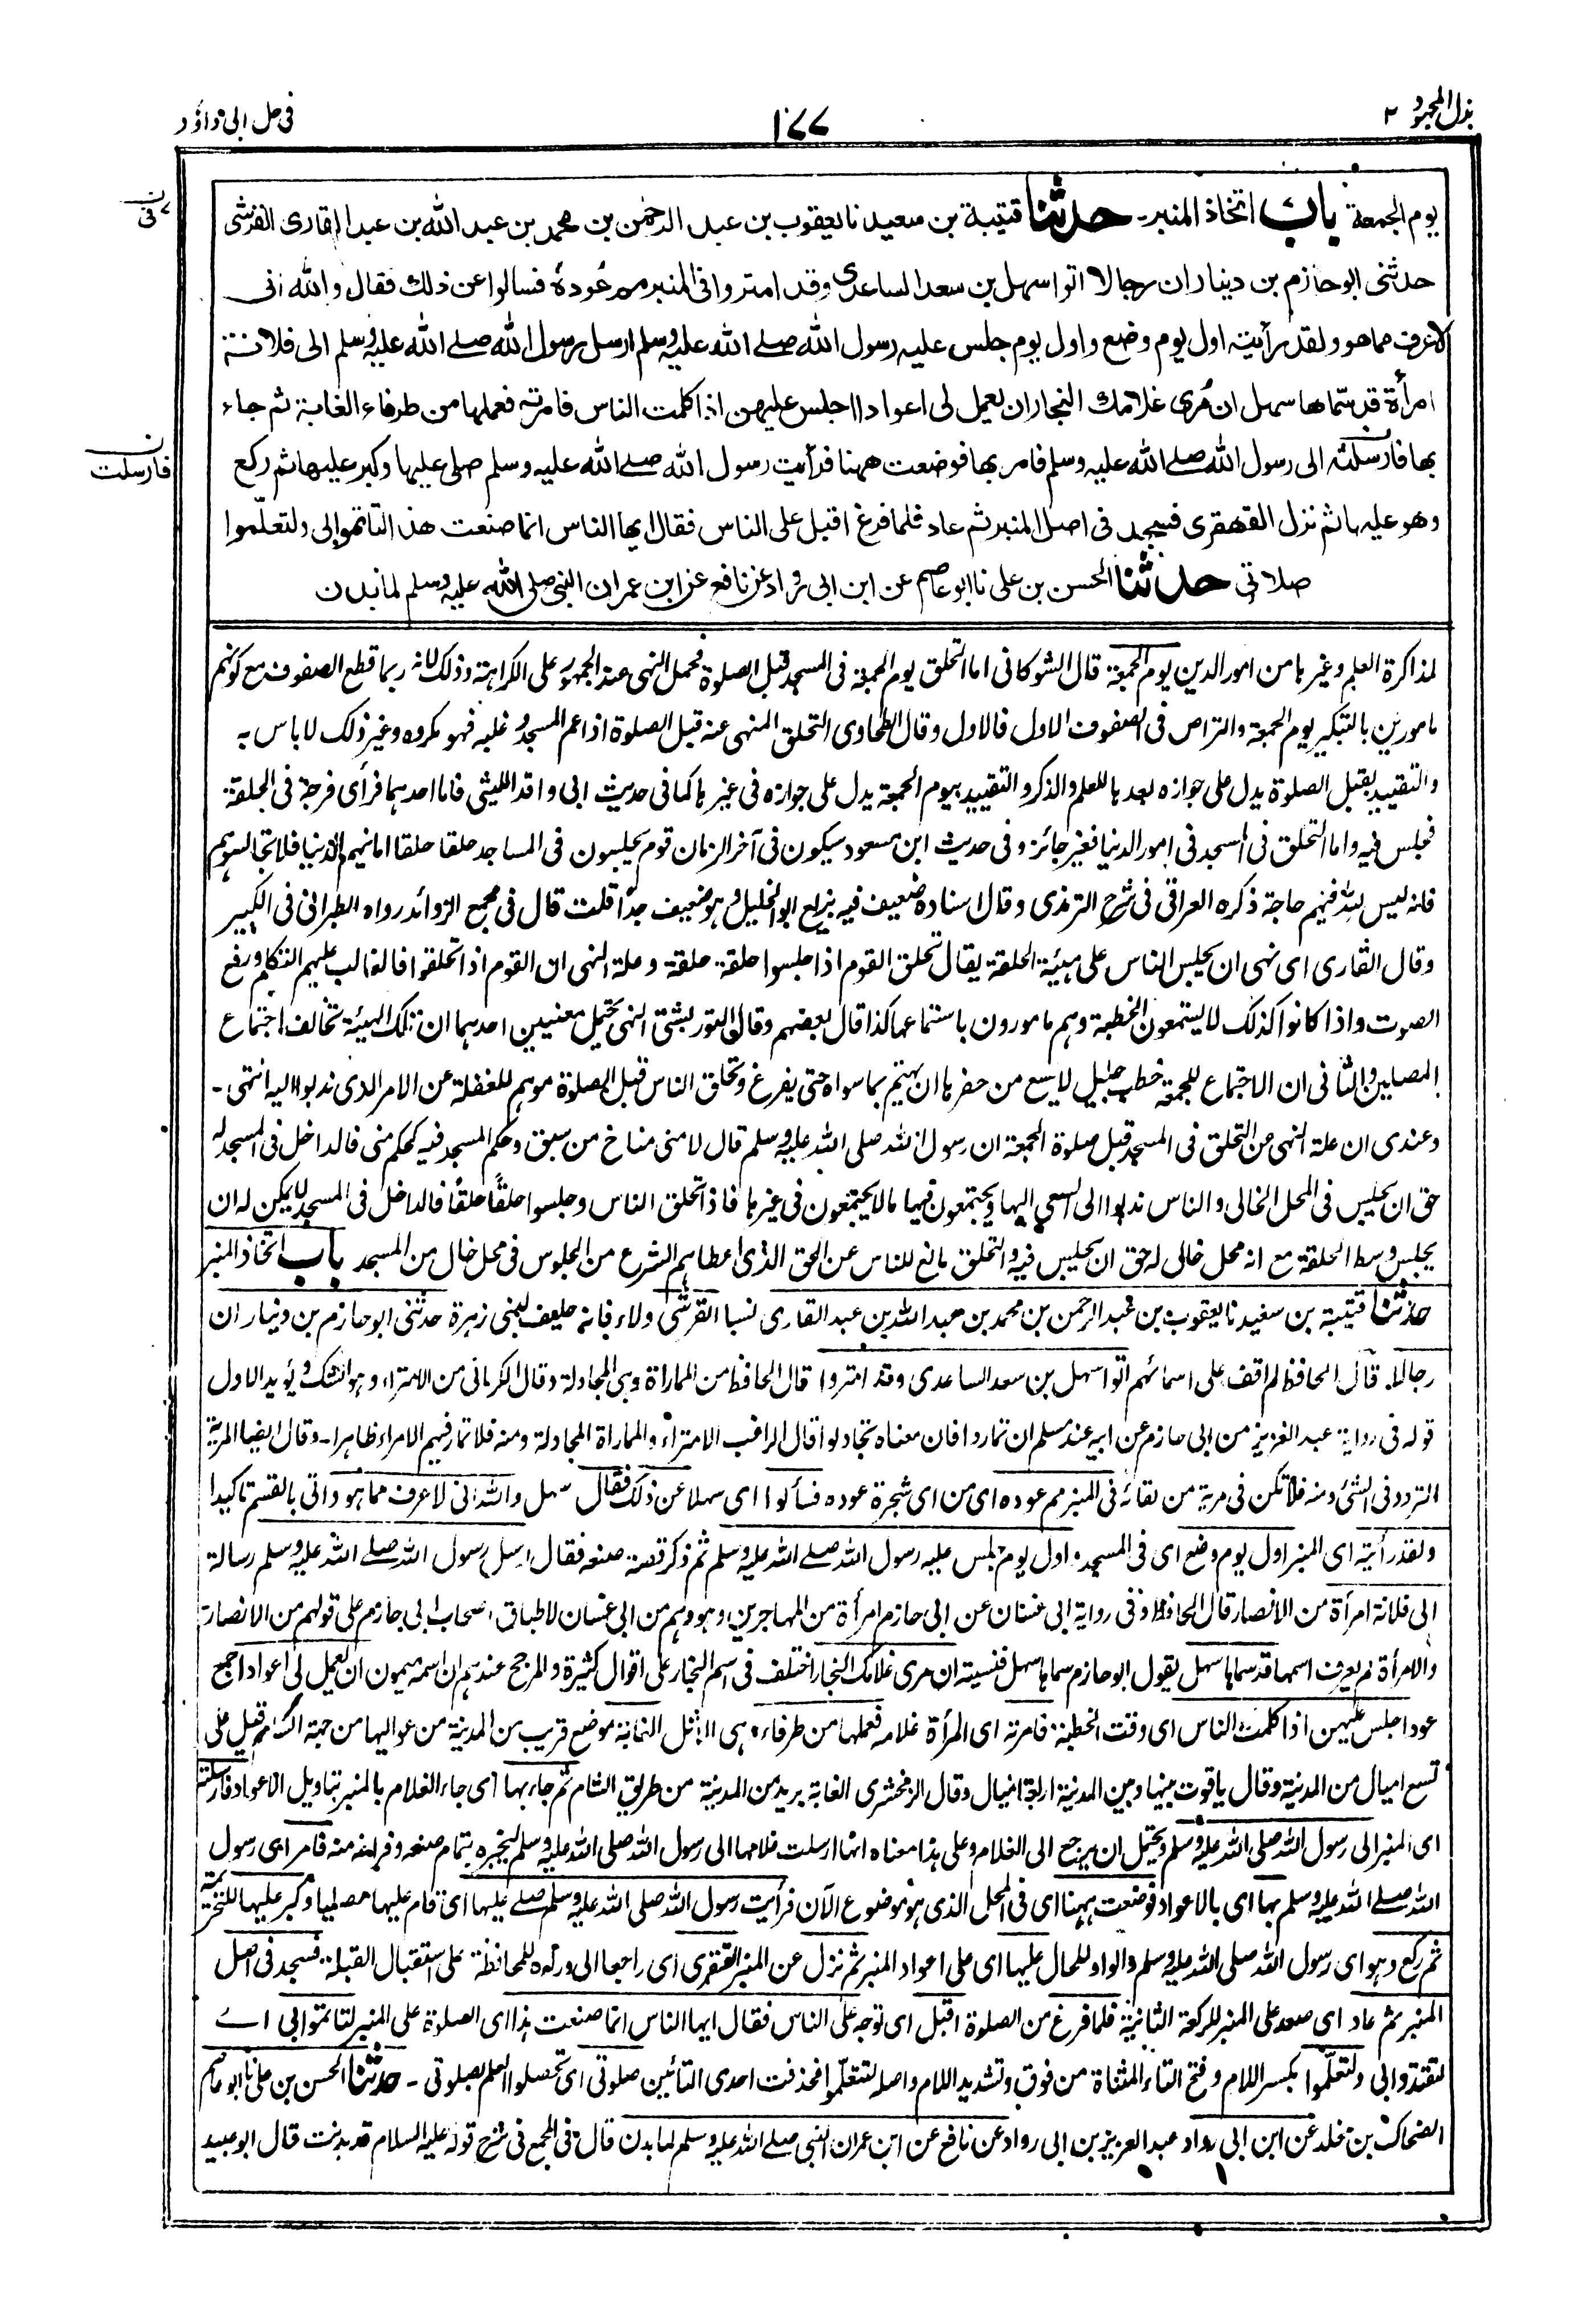 بذل المجهود ٢
١٧٧
فی حل ابی داؤد
يوم الجمعة باب اتخاذ المنبر۔ حدثنا قتيبة بن سعيد نا يعقوب بن عبد الرحمٰن بن محمد بن عبد الله بن عبد القاری القرشی
حدثنی ابو حازم بن دينار ان رجالا اتوا سهل بن سعد الساعدی وقد امتروا فی المنبر مم عُوده فسالوا عن ذلك فقال والله انی
لاعرف مما هو ولقد رأيته اول يوم وضع واول يوم جلس عليه رسول الله صلے الله عليه وسلم ارسل رسول الله صلے الله عليه وسلم الی فلانة
امرأة قد سمّاها سهل ان مُری غلامك النجار ان يعمل لی اعوادا اجلس عليهن اذا كلمت الناس فامرته فعملها من طرفاء الغابة ثم جاء
بها فارسلته الی رسول الله صلے الله عليه وسلم فامر بها فوضعت ههنا فرأيت رسول الله صلے الله عليه وسلم صلی عليها وكبر عليها ثم ركع
وهو عليها ثم نزل القهقری فسجد فی اصل المنبر ثم عاد فلما فرغ اقبل علی الناس فقال ايها الناس انما صنعت هذا لتاتموا بی ولتعلّموا
صلاتی حدثنا الحسن بن علی نا ابو عاصم عن ابن ابی رواد عن نافع عن ابن عمر ان النبی صلی الله عليه وسلم لما بدن
ن فی
ن فارسلت
لمذاكرة العلم وغيرها من امور الدين يوم الجمعة قال الشوكانی اما التحلق يوم الجمعة فی المسجد قبل الصلوة فحمل النهی عند الجمهور علی الكراهة وذلك لانه ربما قطع الصفوف مع كونهم
مامورين بالتبكير يوم الجمعة والتراص فی الصفوف الاول فالاول وقال الطحاوی التحلق المنهی عنه قبل الصلوة اذا عم المسجد وغلبه فهو مكروه وغير ذلك لا باس به
والتقييد بقبل الصلوة يدل علی جوازه بعدها للعلم والذكر والتقييد بيوم الجمعة يدل علی جوازه فی غيرها كما فی حديث ابی واقد الليثی فاما احدهما فرأی فرجة فی الحلقة
فجلس فيه واما التحلق فی المسجد فی امور الدنيا فغير جائز وفی حديث ابن مسعود سيكون فی آخر الزمان قوم يجلسون فی المساجد حلقا حلقا امانيهم الدنيا فلا تجالسوهم
فانه ليس لله فيهم حاجة ذكره العراقی فی شرح الترمذی وقال اسناده ضعيف فيه بزيع ابو الخليل وهو ضعيف جداً قلت قال فی مجمع الزوائد رواه الطبرانی فی الكبير
وقال القاری ای نهی ان يجلس الناس علی هيئة الحلقة يقال تحلق القوم اذا جلسوا حلقة حلقة وعلة النهی ان القوم اذا تحلقوا فالغالب عليهم التكلم ورفع
الصوت واذا كانوا كذلك لا يستمعون الخطبة وهم مامورون باستماعها كذا قال بعضهم وقال التوربشتی النهی يحتمل معنيين احدهما ان تلك الهيئة تخالف اجتماع
المصلين والثانی ان الاجتماع للجمعة خطب جليل لا يسع من حضرها ان يهتم بما سواه حتی يفرغ وتحلق الناس قبل الصلوة موهم للغفلة عن الامر الذی ندبوا اليه انتهی۔
وعندی ان علة النهی من التحلق فی المسجد قبل صلوة الجمعة ان رسول الله صلی الله عليه وسلم قال لا منی مناخ من سبق وحكم المسجد فيه كحكم منی فالداخل فی المسجد له
حق ان يجلس فی المحل الخالی والناس ندبوا الی السعی اليها ويجتمعون فيها ما لا يجتمعون فی غيرها فاذا تحلق الناس وجلسوا حلقًا حلقًا فالداخل فی المسجد لا يمكن له ان
يجلس وسط الحلقة مع انه محل خالی له حق ان يجلس فيه والتحلق مانع للناس عن الحق الذی اعطاهم الشرع من الجلوس فی محل خال من المسجد باب اتخاذ المنبر
حدثنا قتيبة بن سعيد نا يعقوب بن عبد الرحمن بن محمد بن عبد الله بن عبد القاری نسبا القرشی ولاء فانه حليف لبنی زهرة حدثنی ابو حازم بن دينار ان
رجالا۔ قال الحافظ لم اقف علی اسمائهم اتوا سهل بن سعد الساعدی وقد امتروا قال الحافظ من المماراة وهی المجادلة وقال الكرمانی من الامتراء وهو الشك ويؤيد الاول
قوله فی رواية عبد العزيز بن ابی حازم عن ابيه عند مسلم ان تماروا فان معناه تجادلوا قال الراغب الامتراء والمماراة المجادلة ومنه فلا تمار فيهم الا مراء ظاهرا۔ وقال ايضا المرية
التردد فی الشئ ومنه فلا تكن فی مرية من لقائه فی المنبر مم عوده ای من ای شجرة عوده فسألوا ای سهلا عن ذلك فقال سهل والله انی لاعرف مما هو واتی بالقسم تاكيدا
ولقد رأيته ای المنبر اول يوم وضع ای فی المسجد واول يوم جلس عليه رسول الله صلے الله عليه وسلم ثم ذكر قصة صنعه فقال ارسل رسول الله صلے الله عليه وسلم رسالة
الی فلانة امرأة من الانصار قال الحافظ وفی رواية ابی غسان عن ابی حازم امرأة من المهاجرين وهو وهم من ابی غسان لاطباق اصحاب ابی حازم علی قولهم من الانصار
والامرأة لم يعرف اسمها قد سماها سهل يقول ابو حازم سماها سهل فنسيته ان مری غلامك النجار اختلف فی اسم النجار علی اقوال كثيرة والمرجح عندهم ان اسمه ميمون ان يعمل لی اعوادا جمع
عود اجلس عليهن اذا كلمت الناس ای وقت الخطبة فامرته ای المرأة غلامه فعملها من طرفاء هی الاثل الغابة موضع قريب من المدينة من عواليها من جهة الشام قيل علی
تسع اميال من المدينة وقال ياقوت بينها وبين المدينة اربعة اميال وقال الزمخشری الغابة بريد من المدينة من طريق الشام ثم جاء بها ای جاء الغلام بالمنبر بتاويل الاعواد فارسلته
ای المنبر الی رسول الله صلی الله عليه وسلم ويحتمل ان يرجع الی الغلام وعلی هذا معناه انها ارسلت غلامها الی رسول الله صلی الله عليه وسلم ليخبره بتمام صنعه وفراغه منه فامر ای رسول
الله صلے الله عليه وسلم بها ای بالاعواد فوضعت ههنا ای فی المحل الذی هو موضوع الآن فرأيت رسول الله صلی الله عليه وسلم صلے عليها ای قام عليها مصليا وكبر عليها للتحريمة
ثم ركع وهو ای رسول الله صلی الله عليه وسلم والواو للحال عليها ای علی اعواد المنبر ثم نزل عن المنبر القهقری ای راجعا الی ورائه للمحافظة علی استقبال القبلة فسجد فی اصل
المنبر ثم عاد ای صعد علی المنبر للركعة الثانية فلما فرغ من الصلوة اقبل ای توجه علی الناس فقال ايها الناس انما صنعت هذا ای الصلوة علی المنبر لتاتموا بی اے
لتقتدوا بی ولتعلّموا بكسر اللام وفتح التاء المثناة من فوق وتشديد اللام واصله لتتعلّموا فحذفت احدی التائين صلوتی ای تحصلوا العلم بصلوتی۔ حدثنا الحسن بن علی نا ابو عاصم
الضحاك بن مخلد عن ابن ابی رواد عبد العزيز بن ابی رواد عن نافع عن ابن عمر ان النبی صلے الله عليه وسلم لما بدن قال فی المجمع فی شرح قوله عليه السلام قد بدنت قال ابو عبيد